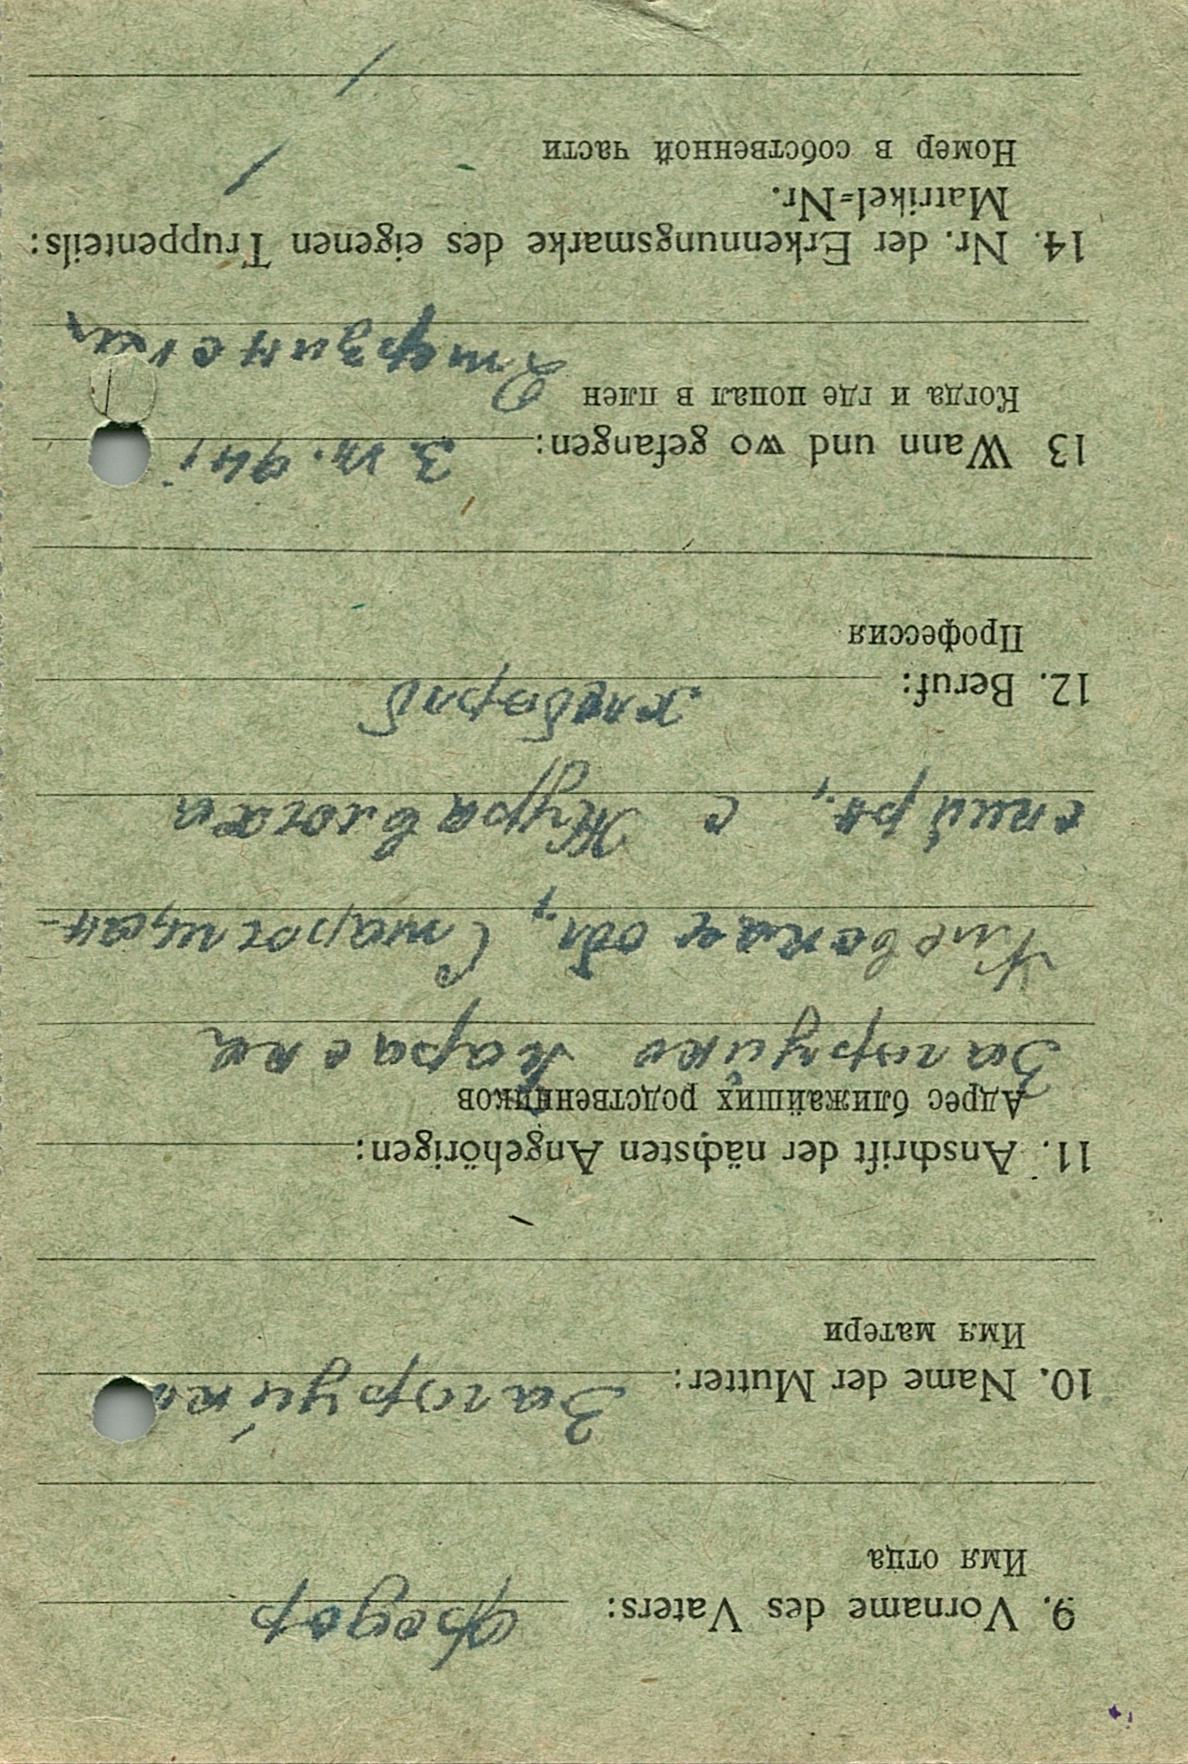 9. Vorname des Vaters: Федор
Имя отца
10. Name der Mutter: Загоруйко
Имя матери
11. Anschrift der nächsten Angehörigen:
Адрес ближайших родственников
Загоруйко
Киевская обл., Старогищан-
ский рн., с
12. Beruf: хлебороб
Профессия
13 Wann und wo gefangen: 3.VII.941
Когда и где попал в плен
14. Nr. der Erkennungsmarke des eigenen Truppenteils:
Matrikel=Nr.
Номер в собственной части